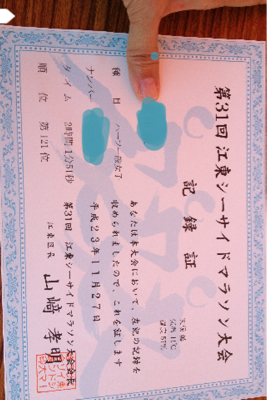 第31回 江東シーサイドマラソン大会
記録証
種目 ハーフ一般女子
ナンバー
タイム 2時間1分51秒
順位 第121位
あなたは本大会において、左記の記録を
収められましたので、これを証します
平成23年11月27日
第31回 江東シーサイドマラソン大会会長
江東区長 山﨑孝明